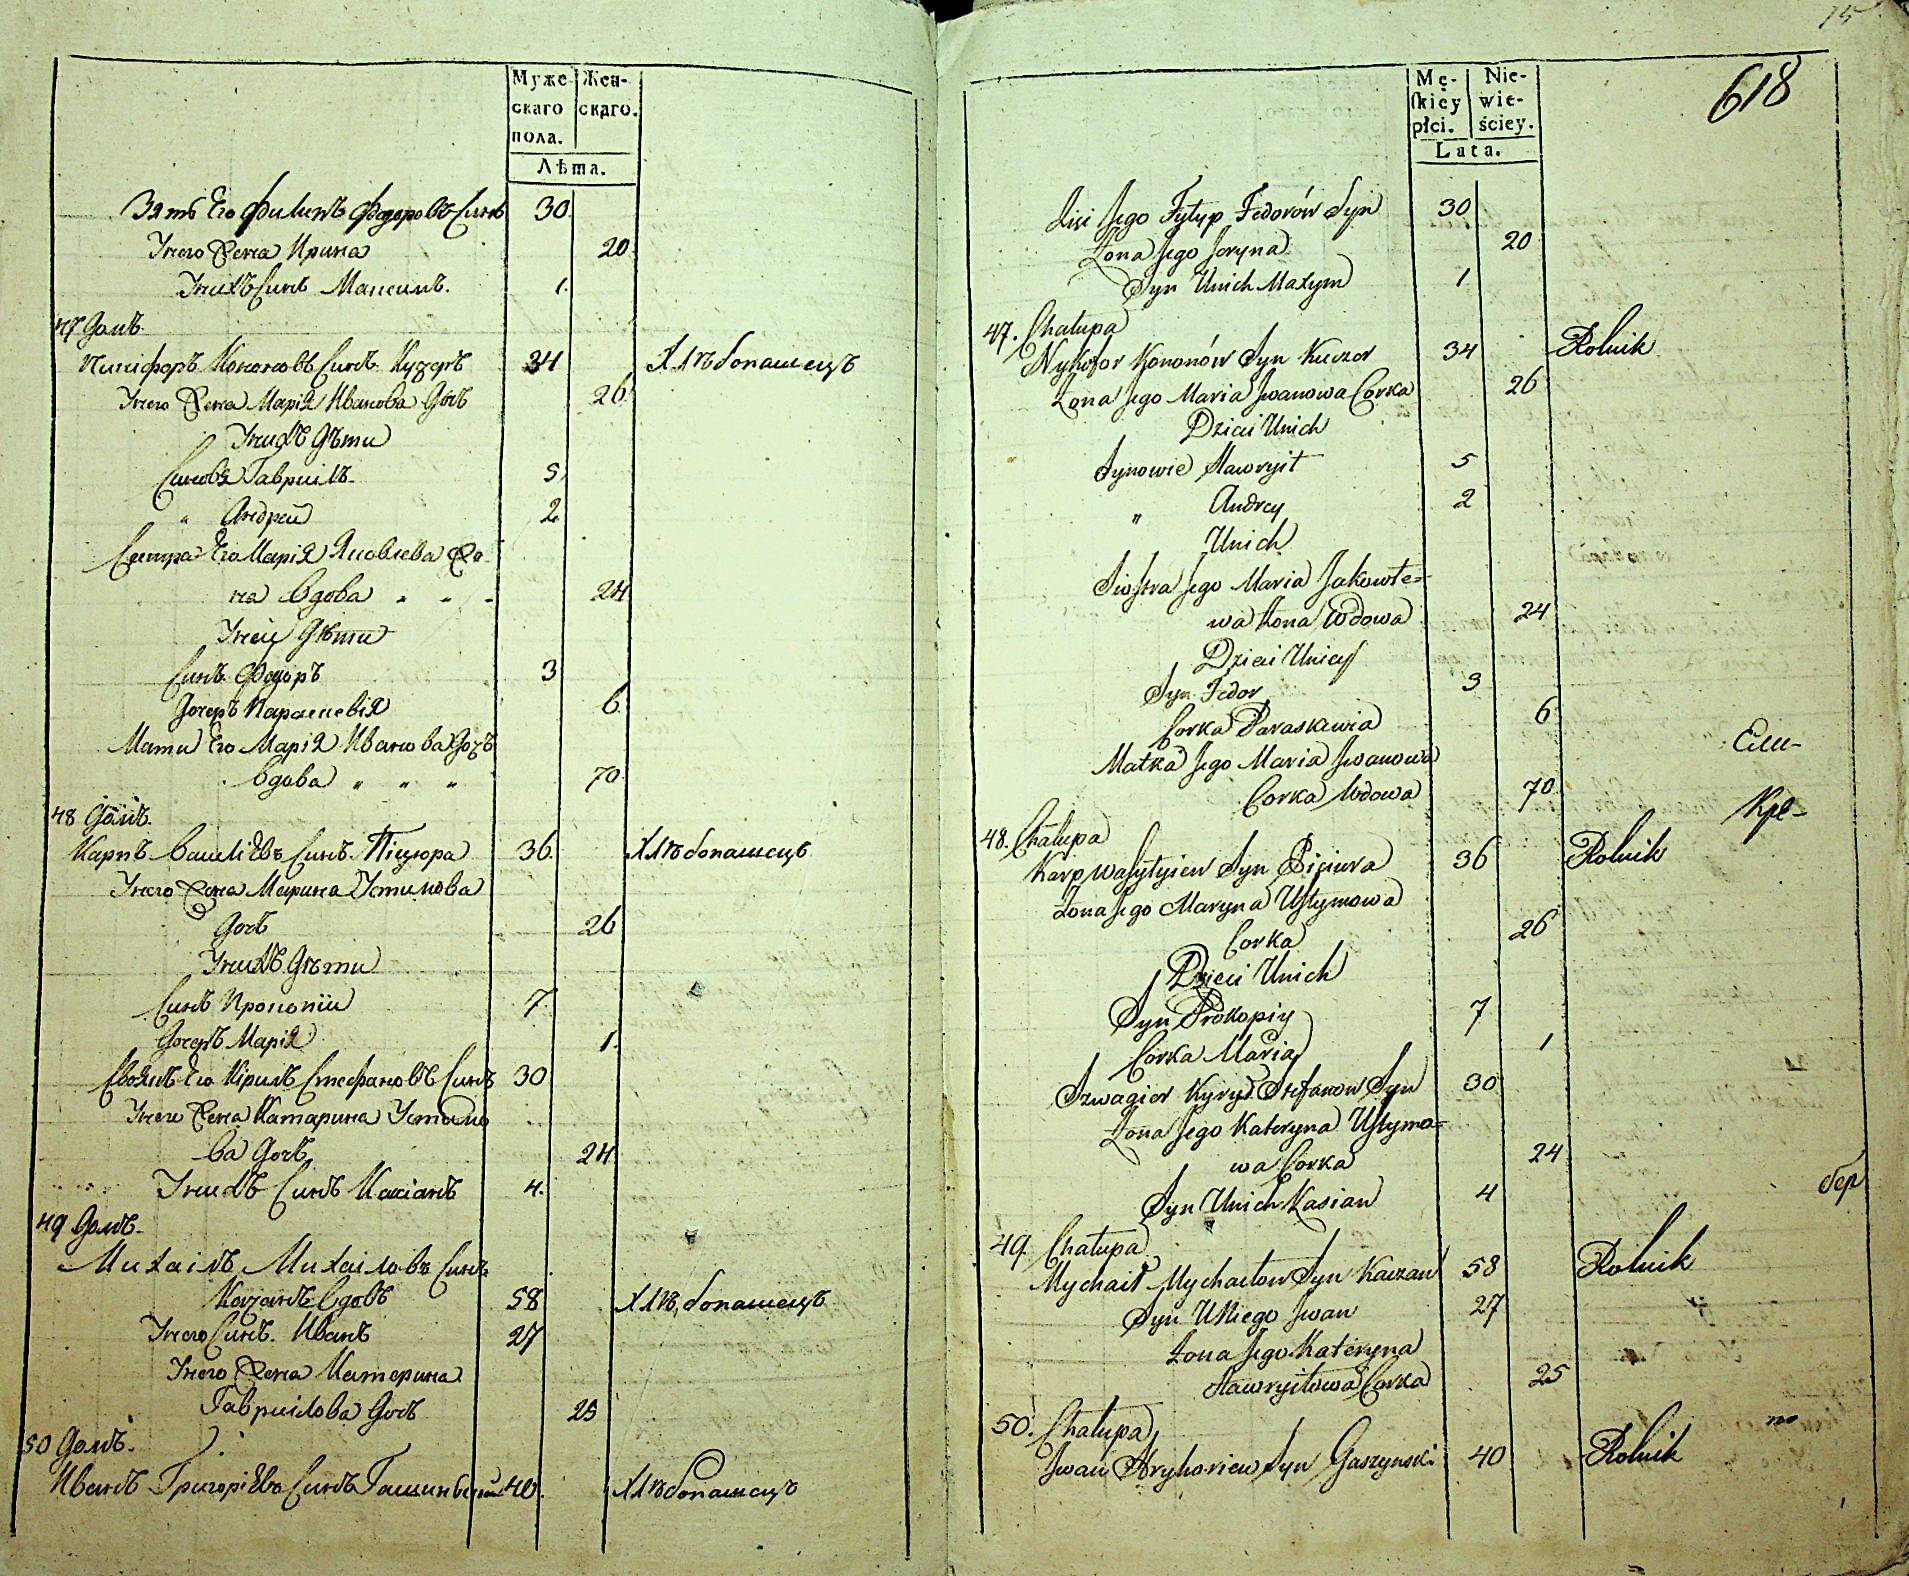 Муже-
скаго
пола.
Жен-
скаго.
Лѣта.
Зять Его Филипъ Федоровъ Синъ 30
Унего Жена Ирина 20
Унихъ Синъ Максимъ. 1.
47 Домъ.
Никифоръ Кононовъ Синъ Кучеръ 34 Хлѣбопашецъ
Унего Жена Марія Иванова Дочь 26
Унихъ Дѣти
Синовя Гавриилъ 5
" Андрей 2
Сестра Его Марія Яковлева Же-
на Вдова " " " 24
Унеи Дѣти
Синъ Федоръ 3
Дочеръ Параскевія 6
Мати Его Марія Иванова Дочь
Вдова " " " 70
48 Домъ.
Карпъ Василіевъ Синъ Піцюра 36. Хлѣбопашецъ
Унего Жена Марина Устимова
Дочь 26
Унихъ Дѣти
Синъ Прокопіи 7.
Дочеръ Марія 1.
Своякъ Его Кірилъ Стефановъ Синъ 30
Унеги Жена Катарина Устимо
ва Дочь 24
Унихъ Синъ Касіанъ 4.
49 Домъ.
Михаилъ Михаиловъ Синъ
Качанъ Вдовъ 58 Хлѣбопашецъ
Унего Синъ Иванъ 27
Унего Жена Катерина
Гавриилова Дочь 25
50 Домъ.
Иванъ Григоріевъ Синъ Гашиньский 40. Хлѣбопашецъ
15
618
Mę-
skiey
płci.
Nie-
wie-
ściey.
Lata.
Jego Fylyp Fedorów Syn 30
Żona Jego Joryna 20
Syn Unich Maxym 1
47. Chałupa
Nykofor Kononów Syn Kuczer 34 Rolnik
Żona Jego Maria Jwanowa Corka 26
Dzieci Unich
Synowie Hawryił 5
" Andrey 2
Unich
Siostra Jego Maria Jakowłe-
wa Żona Wdowa 24
Dzieci Uniey
Syn Fedor 3
Corka Paraskiwia 6
Matka Jego Maria Jwanowa
Corka Wdowa 70
Кре-
48. Chałupa
Karp Wasylyiew Syn Piciura 36 Rolnik
Żona Jego Maryna Ustymowa
Corka 26
Dzieci Unich
Syn Prokopiy 7
Córka Maria 1
Szwagier Kyrył Stefanow Syn 30
Żona Jego Kateryna Ustymo-
wa Corka 24
Syn Unich Kasian 4
бер
49. Chałupa
Mychaił Mychaiłow Syn Kaczan 58 Rolnik
Syn UNiego Jwan 27
Żona Jego Kateryna
Hawryiłowa Corka 25
50. Chałupa
по
Jwan Hryhoriew Syn Gaszynski 40 Rolnik